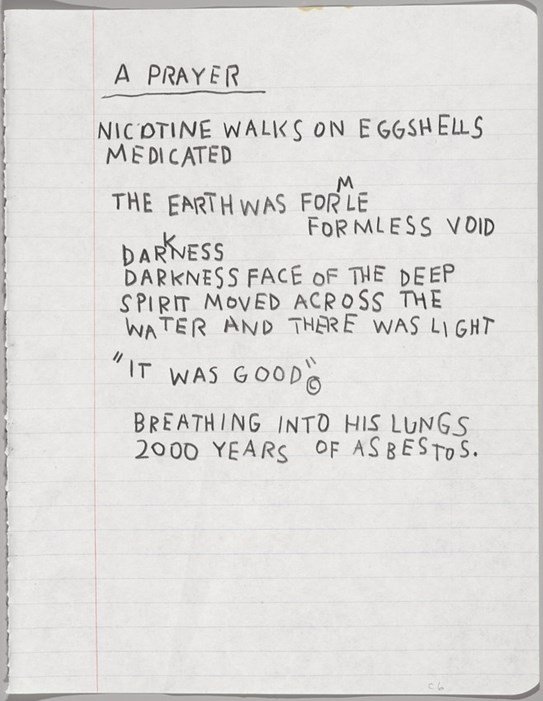 A PRAYER
NICOTINE WALKS ON EGGSHELLS
MEDICATED
THE EARTH WAS FORMLE
FORMLESS VOID
DARKNESS
DARKNESS FACE OF THE DEEP
SPIRIT MOVED ACROSS THE
WATER AND THERE WAS LIGHT
"IT WAS GOOD"©
BREATHING INTO HIS LUNGS
2000 YEARS OF ASBESTOS.
C6